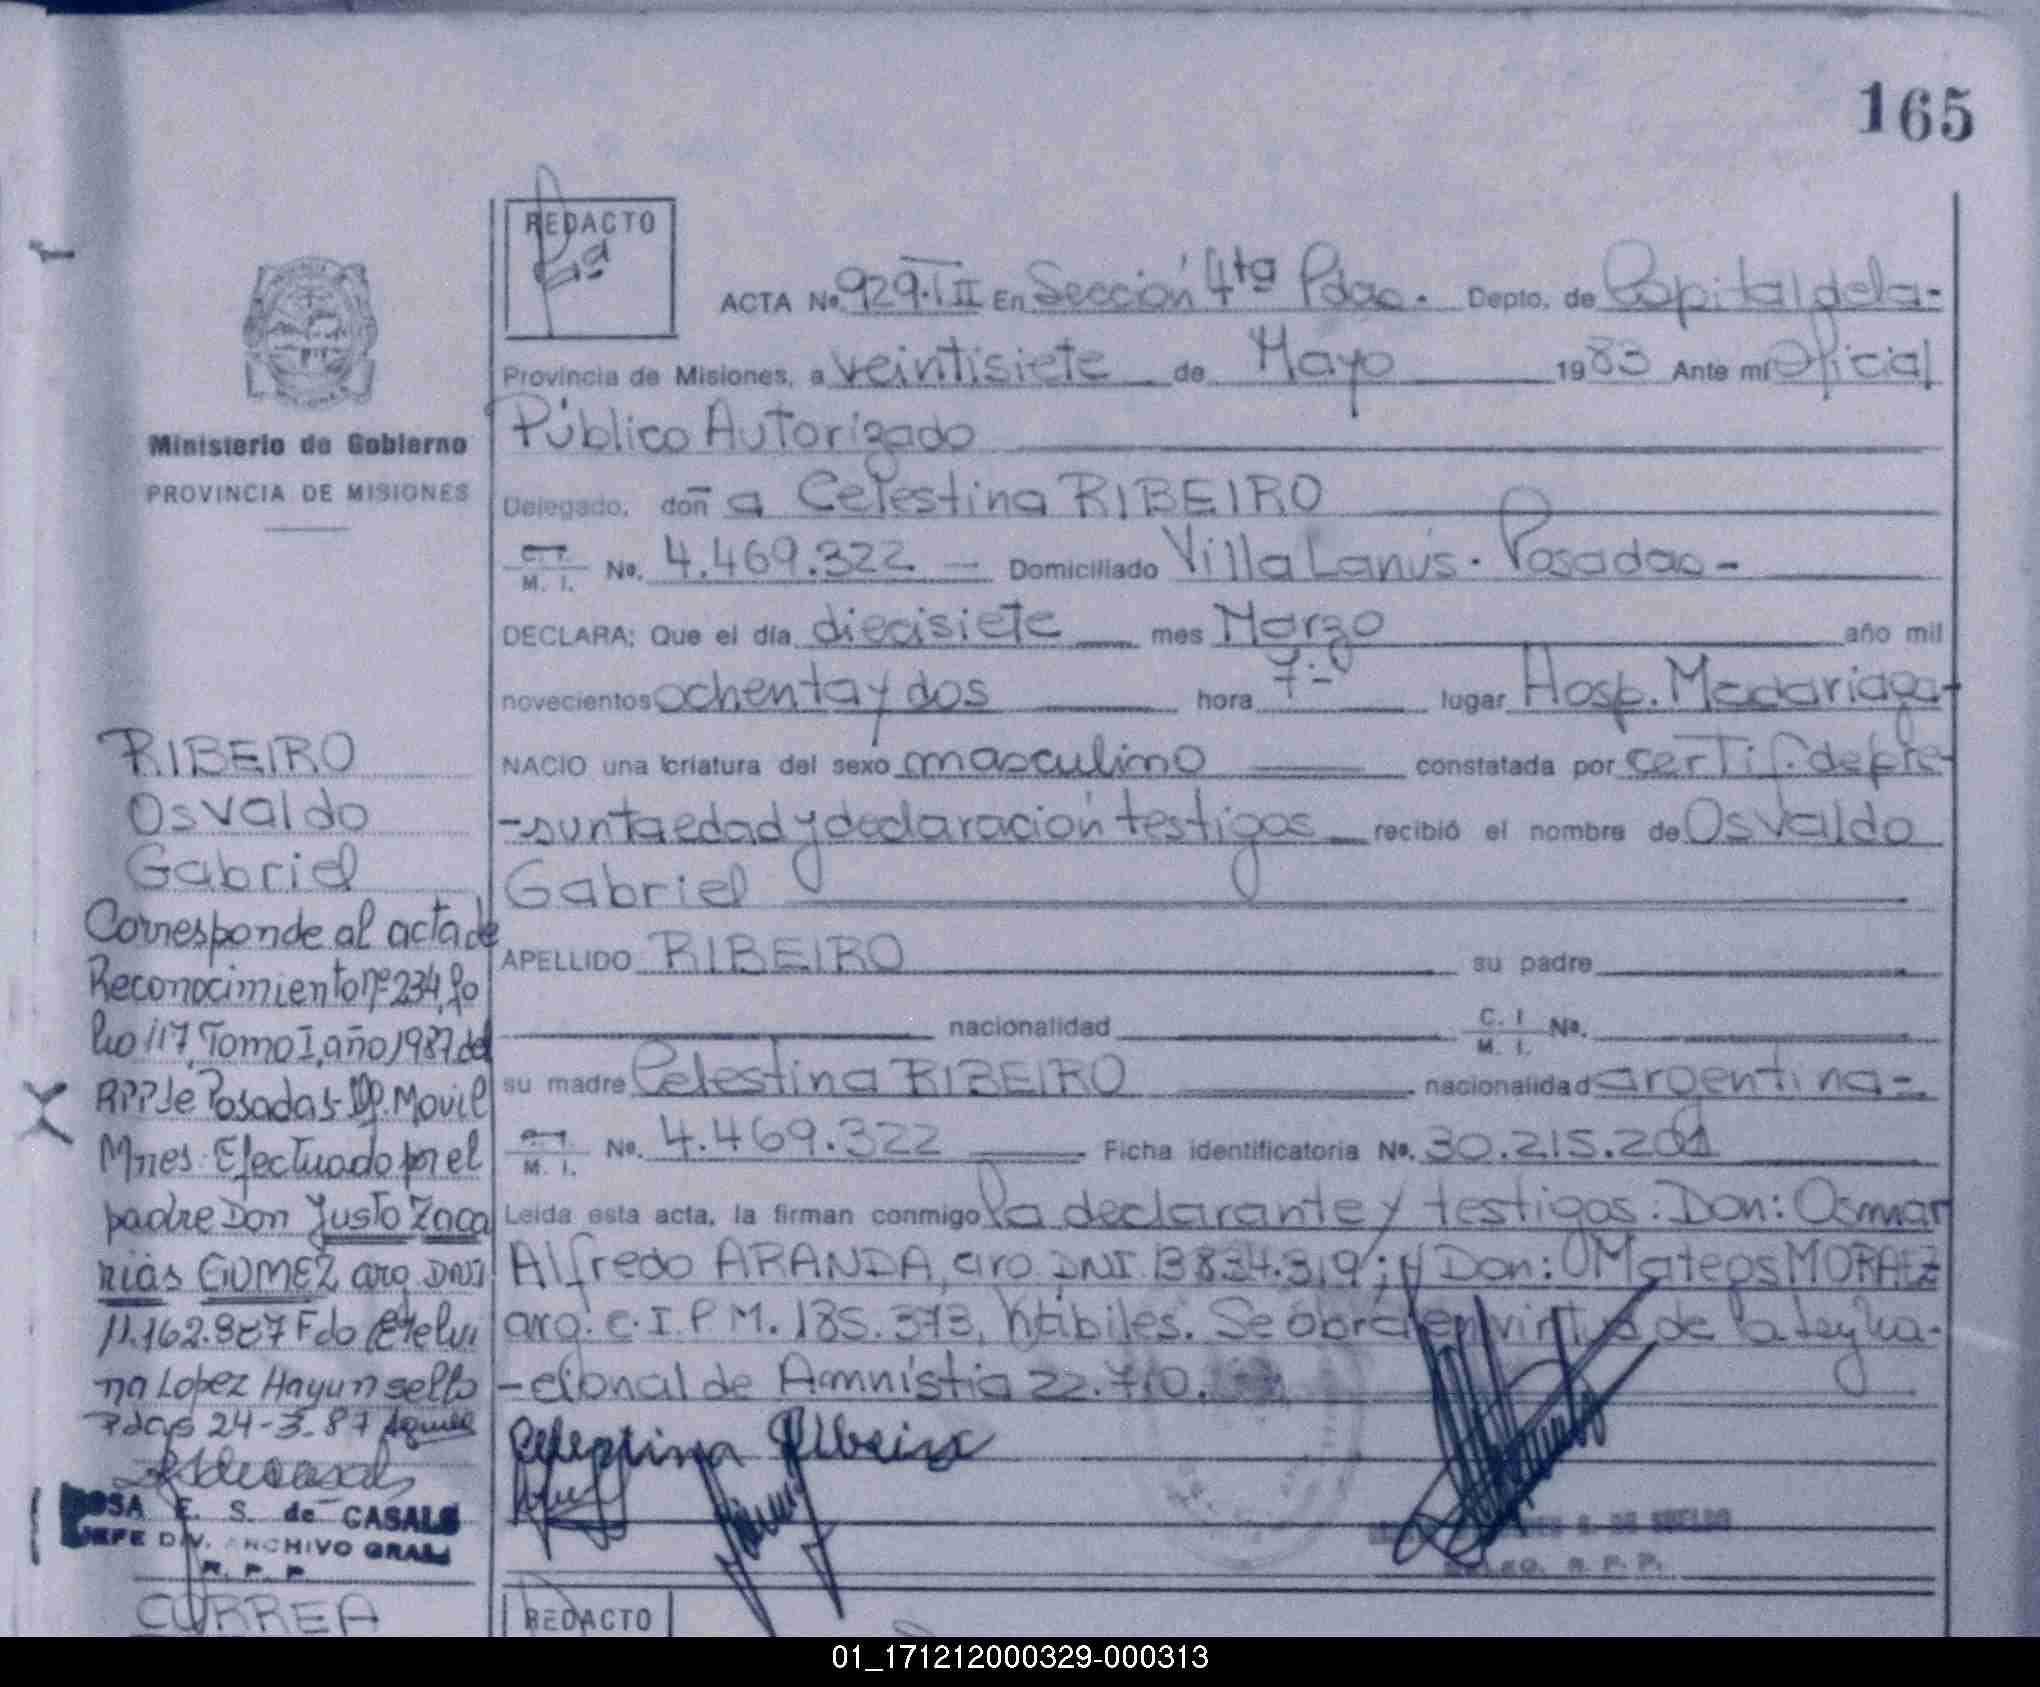 165
REDACTO
ACTA No. 929.TII En Sección 4ta Pdas. Depto. de Capital de la-
Provincia de Misiones, a veintisiete de Mayo 1983 Ante mí Oficial
Público Autorizado
Ministerio de Gobierno
PROVINCIA DE MISIONES
Delegado, doñ a Celestina RIBEIRO
C. I.
M. I. No. 4.469.322 - Domiciliado Villa Lanús. Posadas-
DECLARA: Que el día diecisiete mes Marzo año mil
novecientos ochenta y dos hora 7- lugar Hosp. Madariaga-
NACIO una criatura del sexo masculino constatada por certif. de pre-
-sunta edad y declaración testigos recibió el nombre de Osvaldo
Gabriel
APELLIDO RIBEIRO su padre
nacionalidad C. I. M. I. No.
su madre Celestina RIBEIRO nacionalidad argentina-
C. I.
M. I. No. 4.469.322 Ficha identificatoria No. 30.215.201
Leida esta acta, la firman conmigo la declarante y testigos: Don: Osmar
Alfredo ARANDA, arg DNI 13834.319; y Don: Mateos MORALEZ
arg. C.I.P.M. 185.373, hábiles. Se obra en virtud de la Ley Na-
-cional de Amnistia 22.710.
Celestina Ribeiro
RIBEIRO
Osvaldo
Gabriel
Corresponde al acta de
Reconocimiento nº 234, fo
lio 117, Tomo I, año 1987 del
RPP de Posadas-Dp. Movil
Mnes. Efectuado por el
padre Don Justo Zaca
rias GOMEZ arg. DNI
11.162.987 Fdo Etelvi
na Lopez Hay un sello
Pdas 24-3-87
ROSA E. S. de CASALS
JEFE DIV. ARCHIVO GRAL
R. P. P.
DE SUELDO
R. P. P.
CORREA
REDACTO
01_171212000329-000313